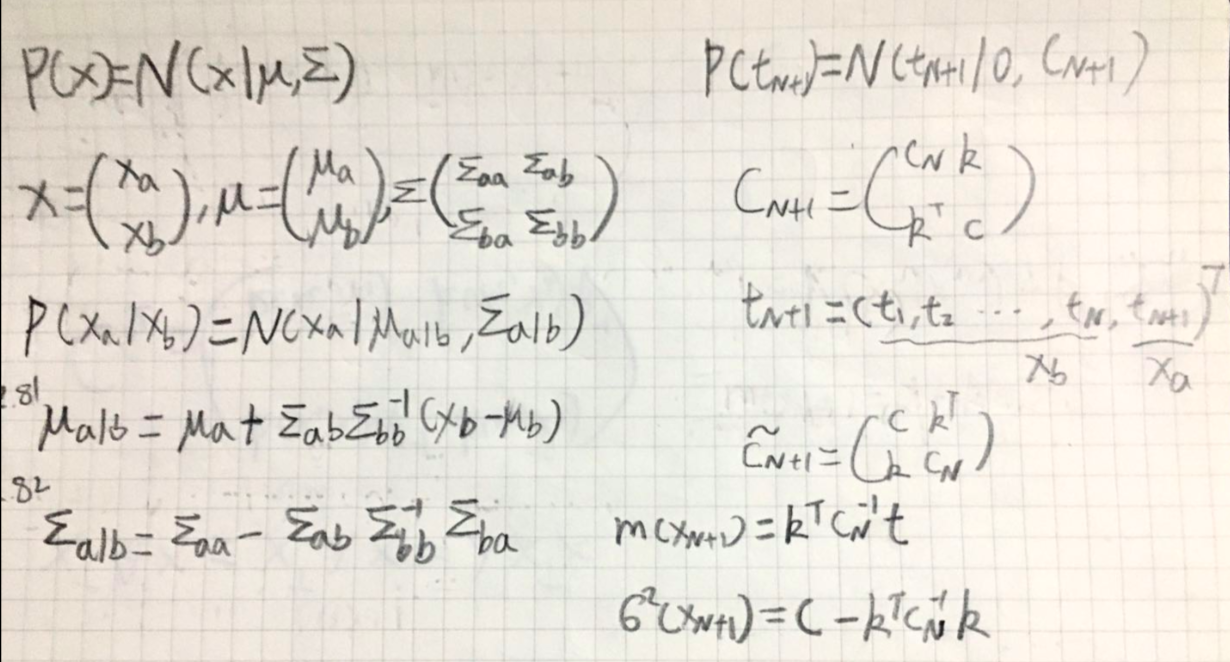 P(x)=N(x|μ,Σ)
x=(xa xb), μ=(μa μb), Σ=(Σaa Σab Σba Σbb)
P(xa|xb)=N(xa|μa|b,Σa|b)
.81 μa|b = μa+ΣabΣbb⁻¹(xb-μb)
.82 Σa|b = Σaa - Σab Σbb⁻¹ Σba
P(tN+1)=N(tN+1|0, CN+1)
CN+1=(CN k kᵀ c)
tN+1=(t1,t2 ⋯, tN, tN+1)ᵀ
xb xa
C̃N+1=(c kᵀ k CN)
m(xN+1)=kᵀCN⁻¹t
6²(xN+1)=C-kᵀCN⁻¹k